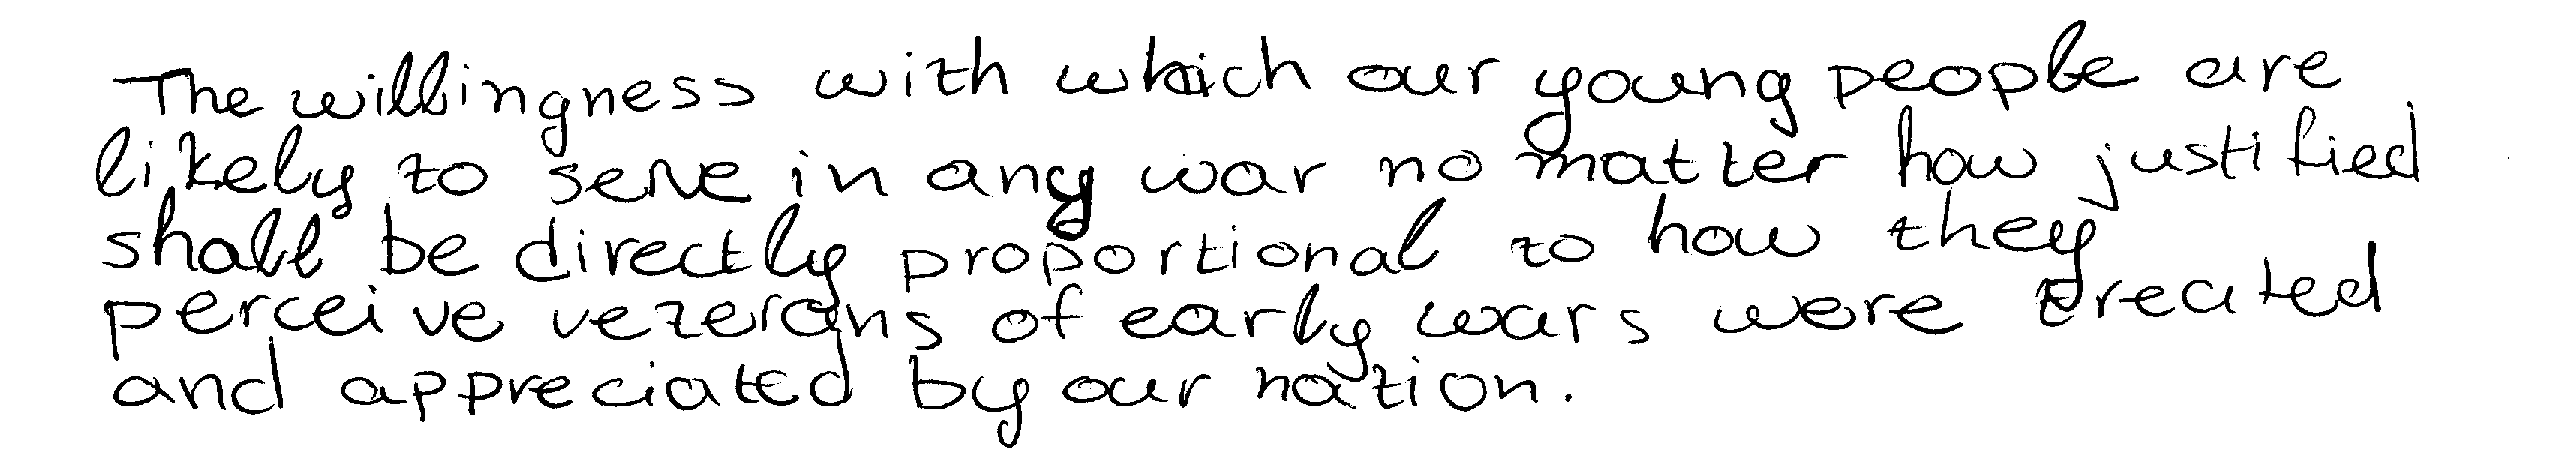 The willingness with which our young people are
likely to serve in any war no matter how justified
shall be directly proportional to how they
perceive veterans of early wars were treated
and appreciated by our nation.